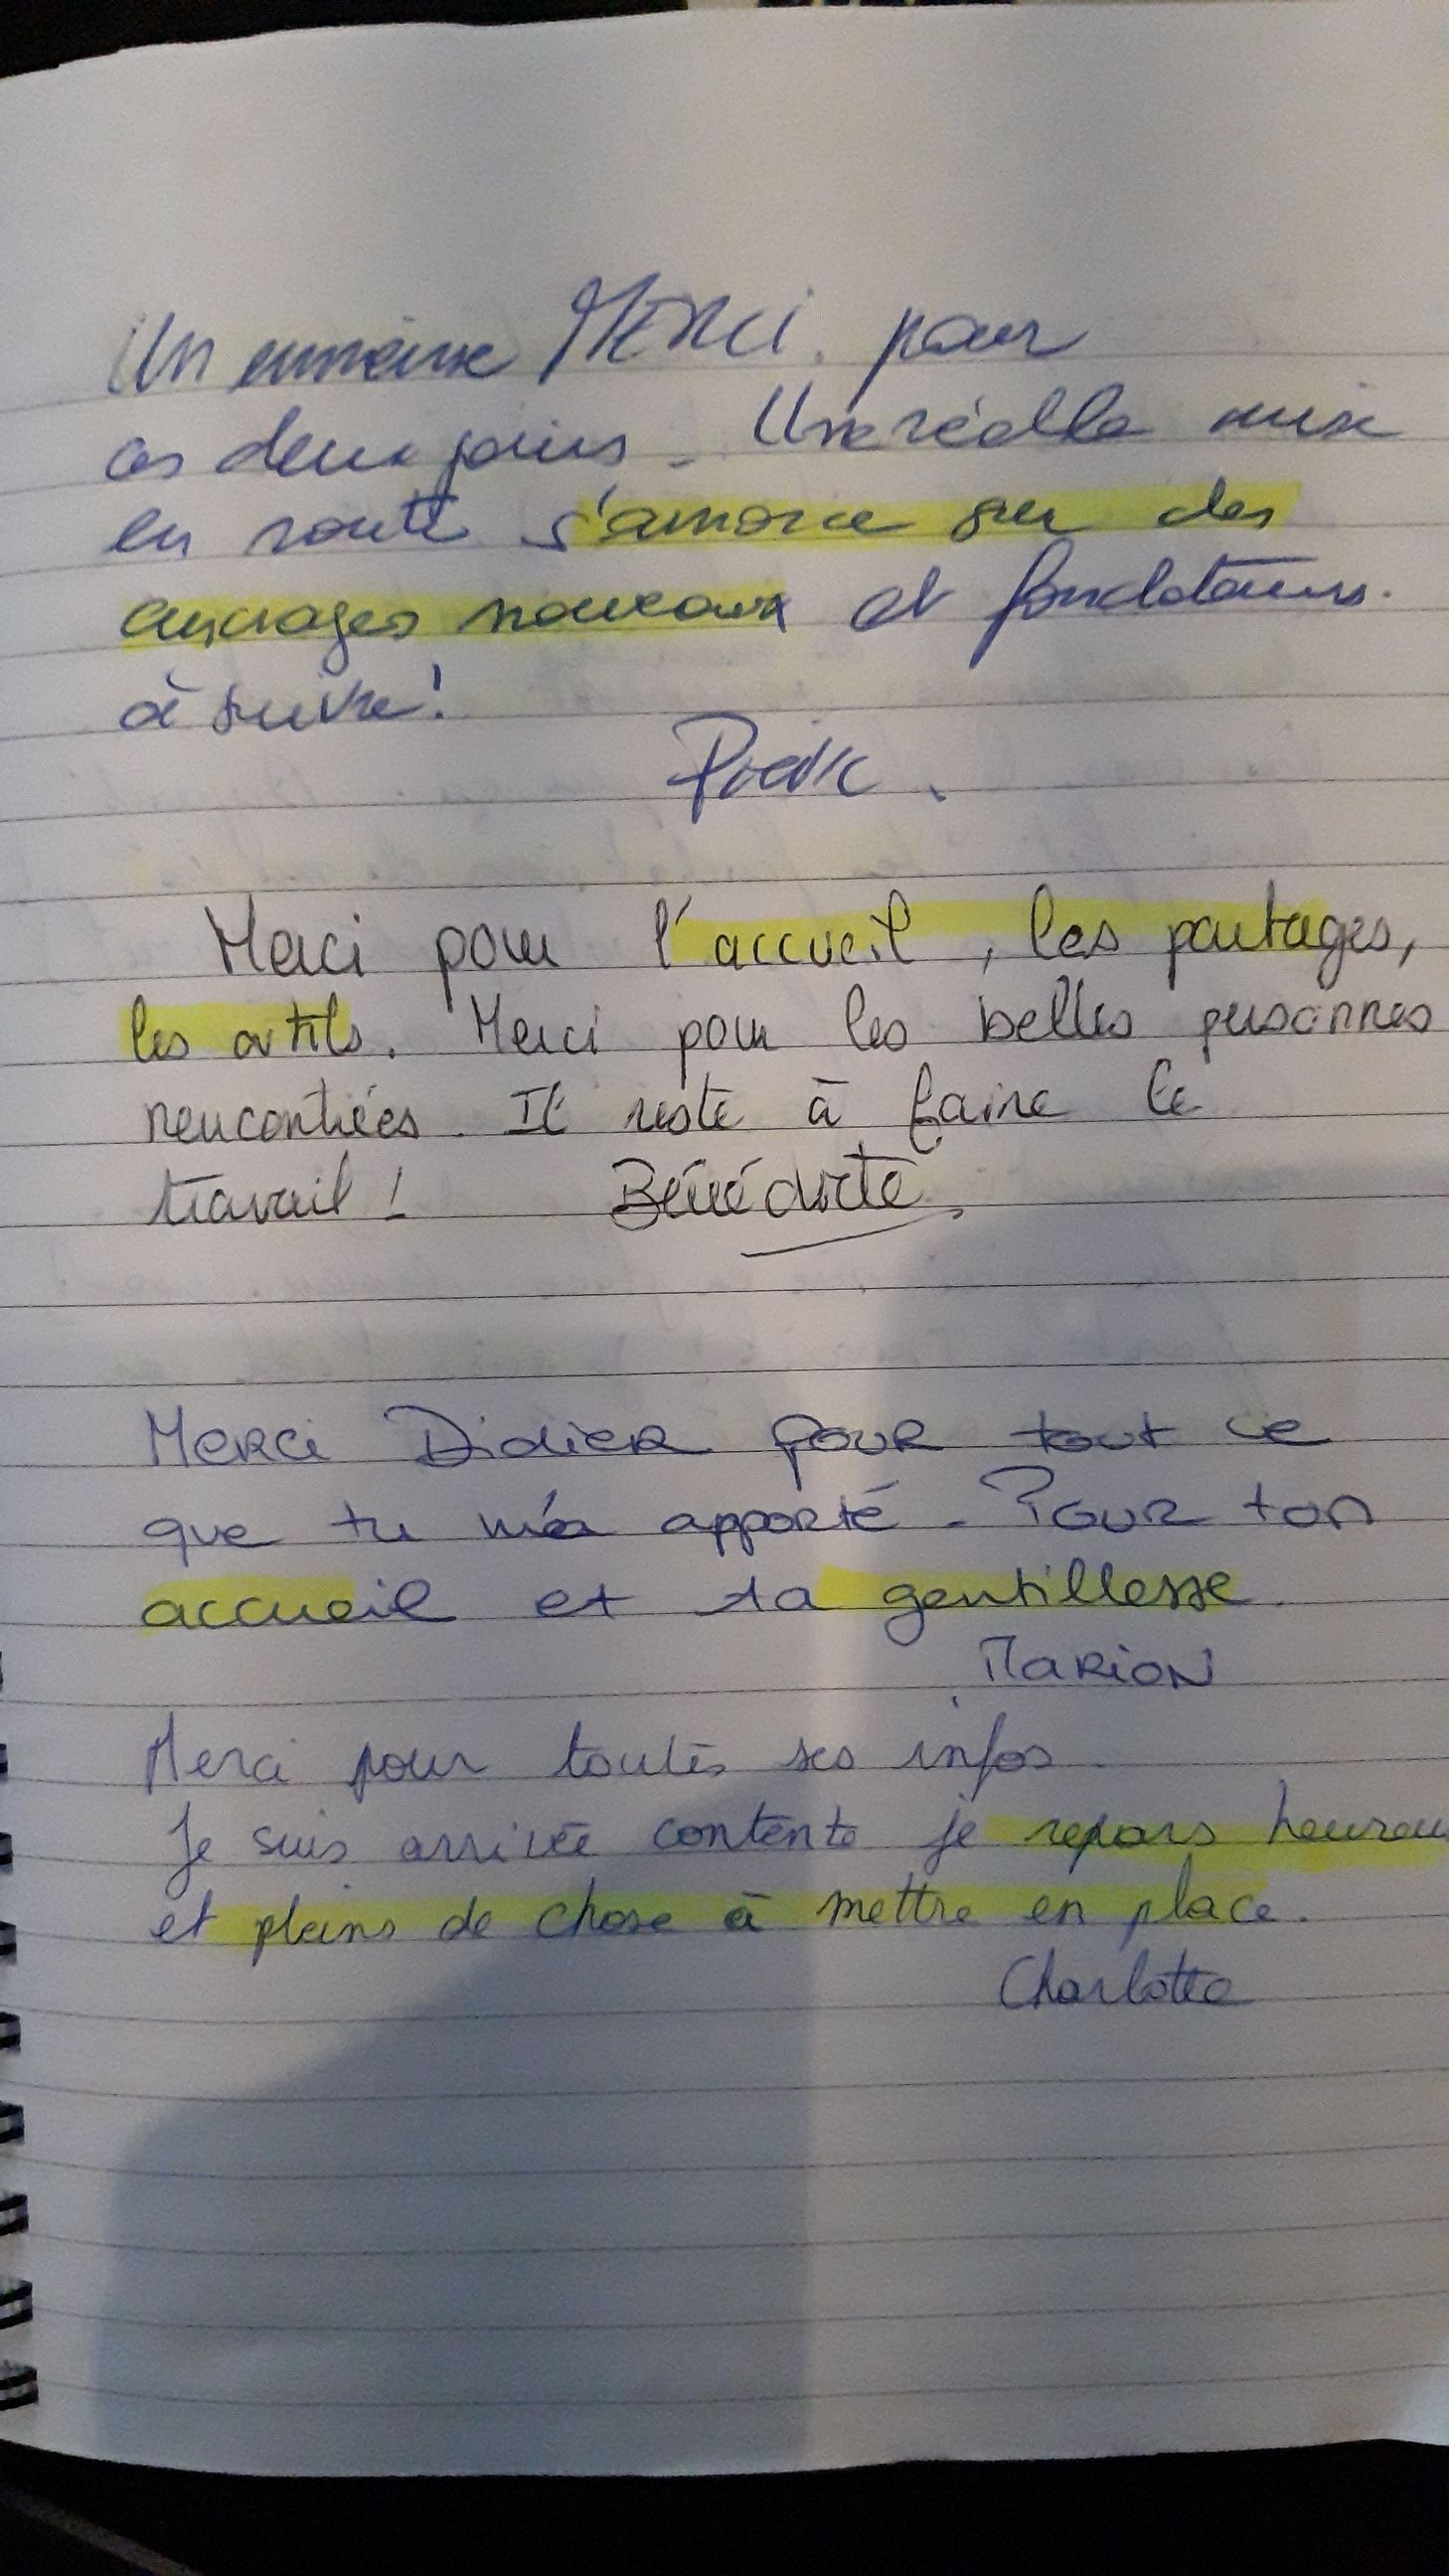 Un immense Merci. pour
ces deux jours. Une réelle mise
en route s'amorce sur des
ancrages nouveaux et fondateurs.
à suivre!
Merci pour l'accueil, les partages,
les outils. Merci pour les belles personnes
rencontrées. Il reste à faire le
travail !   Bénédicte
Merci Didier pour tout ce
que tu m'a apporté. Pour ton
accueil et ta gentillesse.
Marion
Merci pour toutes ses infos.
Je suis arrivée contente je repars heureu
et pleins de chose à mettre en place.
Charlotte